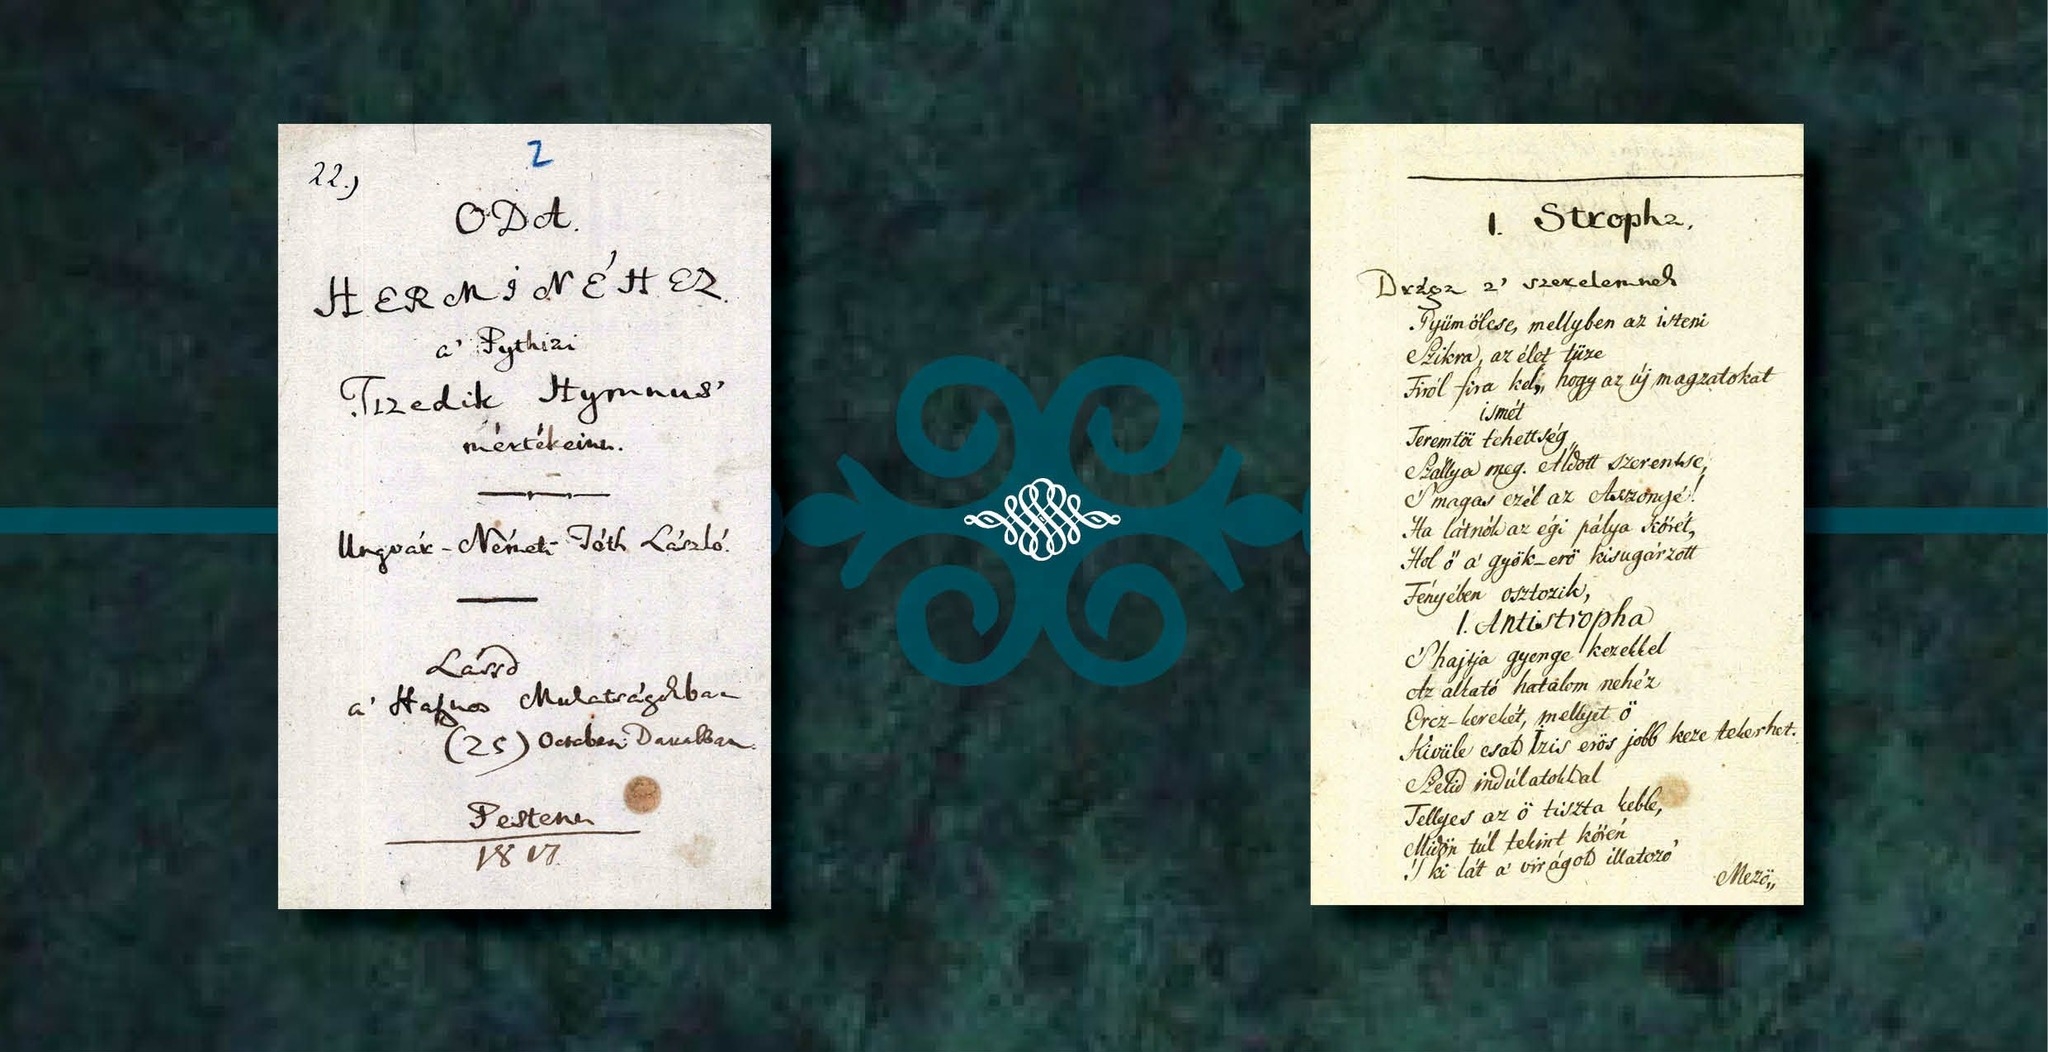 2
22.)
ODA.
HERMINÉHEZ.
a' Pythiai
Tizedik Hymnus'
mértékeinn.
Ungvár-Németi Tóth László.
Lássd
a' Hasznos Mulatságokban
(25)
Pestenn
1817.
1. Stropha.
Drága a' szerelemnek
Gyümölcse, mellyben az isteni
Szikra, az élet tüze
Firól fira kel, hogy az új magzatokat
ismét
Teremtöi tehettség
Szállya meg. Áldott szerentse,
S' magas czél az Asszonyé!
Ha látnók az égi pálya körét,
Hol ő a' gyök-erö kisugárzott
Fényében osztozik,
1. Antistropha
S' hajtja gyenge kezekkel
Az alkató hatalom nehéz
Ércz-kerekét, mellyet ö
Kivüle csak Izis erös jobb keze tekerhet.
Szelid indúlatokkal
Tellyes az ö tiszta keble,
Midőn túl tekint körén
S' ki lát a' virágok illatozó
Mezö„